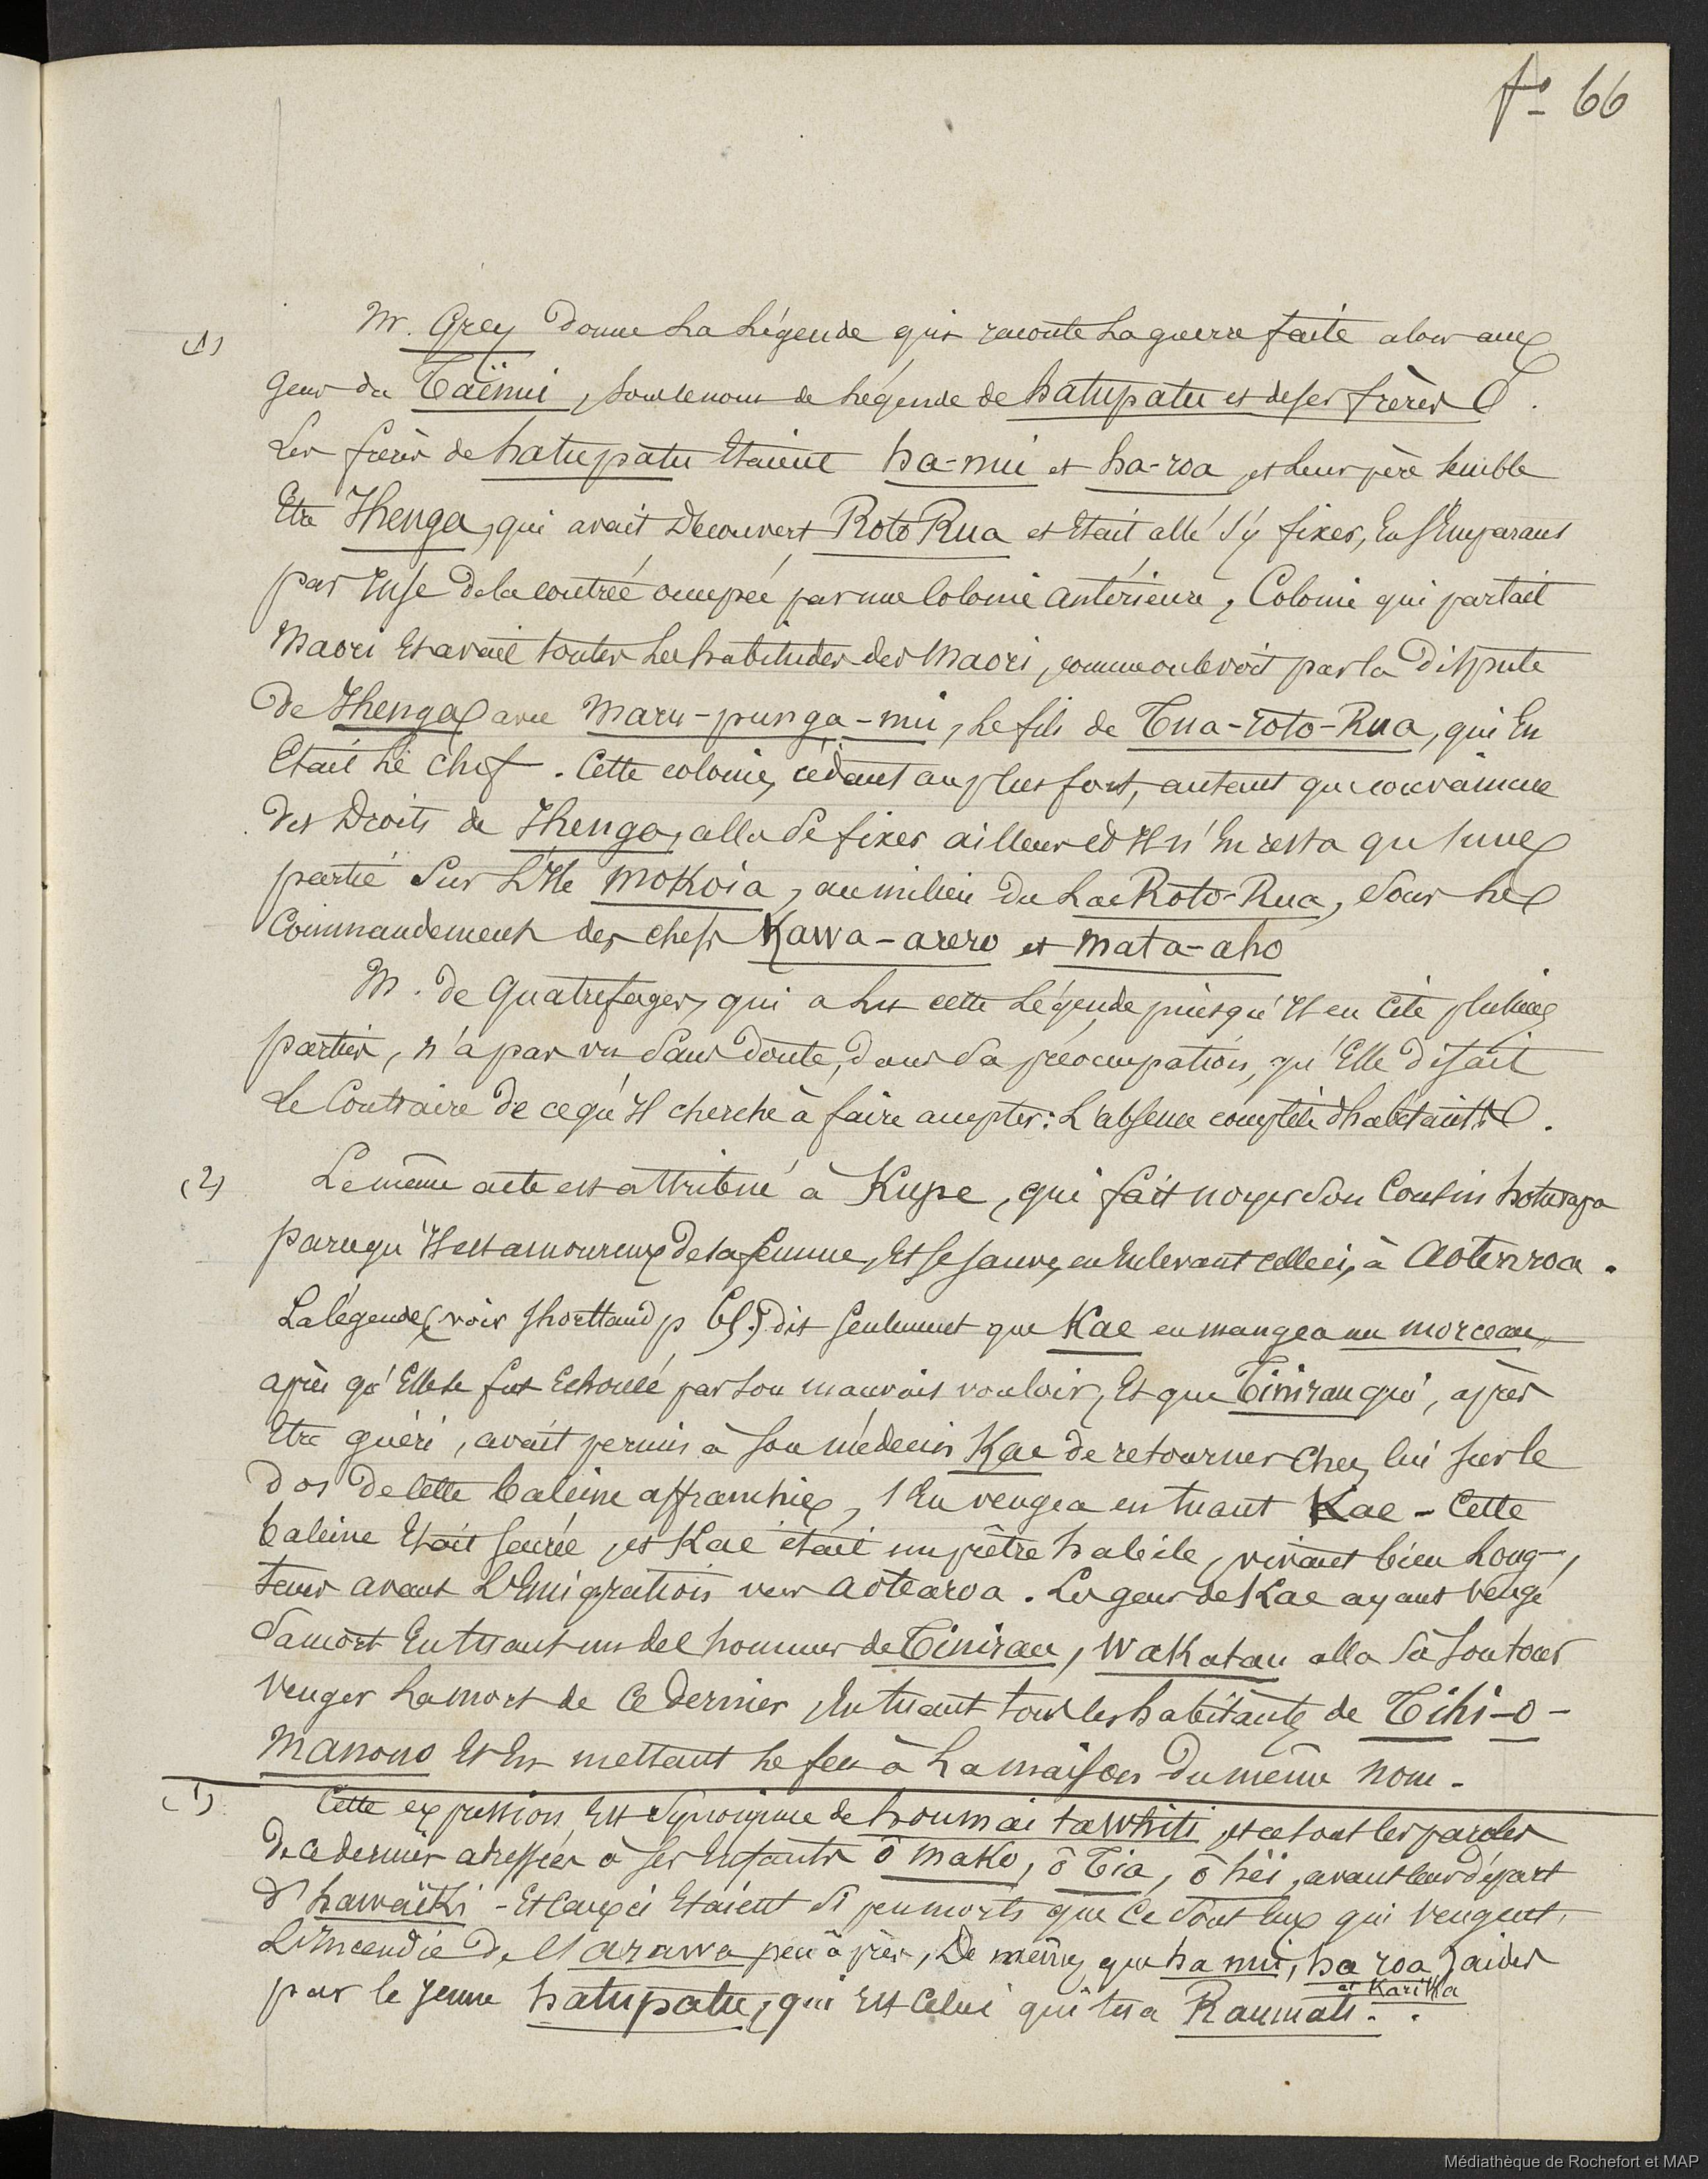 fo 66
(1) Mr. Grey donne la légende qui raconte la guerre faite alors aux
gens du Taïnui, sous le nom de légende de hatupatu et de ses frères.
Les frères de hatupatu étaient ha-nui et ha-roa, et leur père semble
Etre Ihenga, qui avait Découvert Roto Rua et était allé s'y fixer, En s'Emparant
par ruse de la contrée occupée par une Colonie antérieure, Colonie qui parlait
Maori et avait toutes les habitudes des Maori, comme on le voit par la dispute
de Ihenga avec Maru-punga-nui, le fils de Tua-roto-Rua, qui En
Etait le chef. Cette colonie, cédant au plus fort, autant que convaincue
des Droits de Ihenga, alla se fixer ailleurs et Il n'En resta qu'une
partie sur L'Ile Mokoia, au milieu du Lac Roto-Rua, sous le
Commandement des chefs Kawa-arero et Mata-aho
M. de Quatrefages, qui a lu cette Légende puisqu'Il en cite plusieurs
parties, n'a pas vu sans doute, dans sa préoccupation, qu'Elle disait
Le Contraire de ce qu'Il cherche à faire accepter: L'absence complète d'habitants.
(2) Le même acte est attribué à Kupe, qui fait noyer son Cousin hoturapa
parce qu'Il est amoureux de sa femme, Et se sauve, en Enlevant celle ci, à Aotearoa.
La légende (voir Shortland p 65.) dit seulement que Kae en mangea un morceau,
après qu'Elle se fut Echouée par son mauvais vouloir, Et que Tinirau qui, après
Etre guéri, avait permis à son médecin Kae de retourner Chez lui sur le
dos de cette baleine affranchie, s'En vengea en tuant Kae - Cette
baleine Etait sacrée, et Kae était un prêtre habile, vivant bien Long-
tems avant L'Emigration vers Aotearoa. Les gens de Kae ayant vengé
Sa mort En tuant un des hommes de Tinirau, Wakatau alla à son tour
Venger La mort de Ce dernier, En tuant tous les habitants de Tihi-o-
Manono Et En mettant le feu à La maison du même nom.
(1) Cette expression Est Synonyme de houmai tawhiti, et ce sont les paroles
de ce dernier adressées à ses Enfants ô Mako, ô Tia, ô héi, avant leur départ
d'hawaïki - Et Ceux ci Etaient si peu morts que Ce sont Eux qui vengent
L'Incendie de l'arawa peu après, De même que ha nui, ha roa, aidés
et Karika
par le jeune hatupatu, qui Est Celui qui tua Raumati.
Médiathèque de Rochefort et MAP